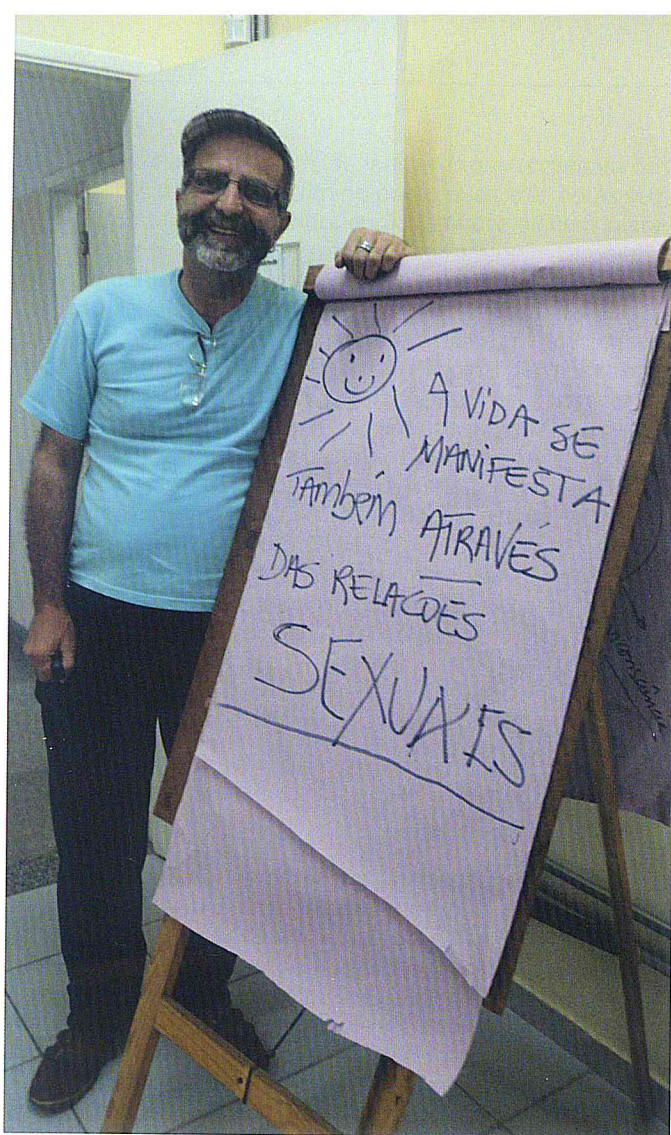 A ViDA SE
MANiFESTA
TAMbéM ATRAVÉS
DAS RELAÇÕES
SEXUAIS